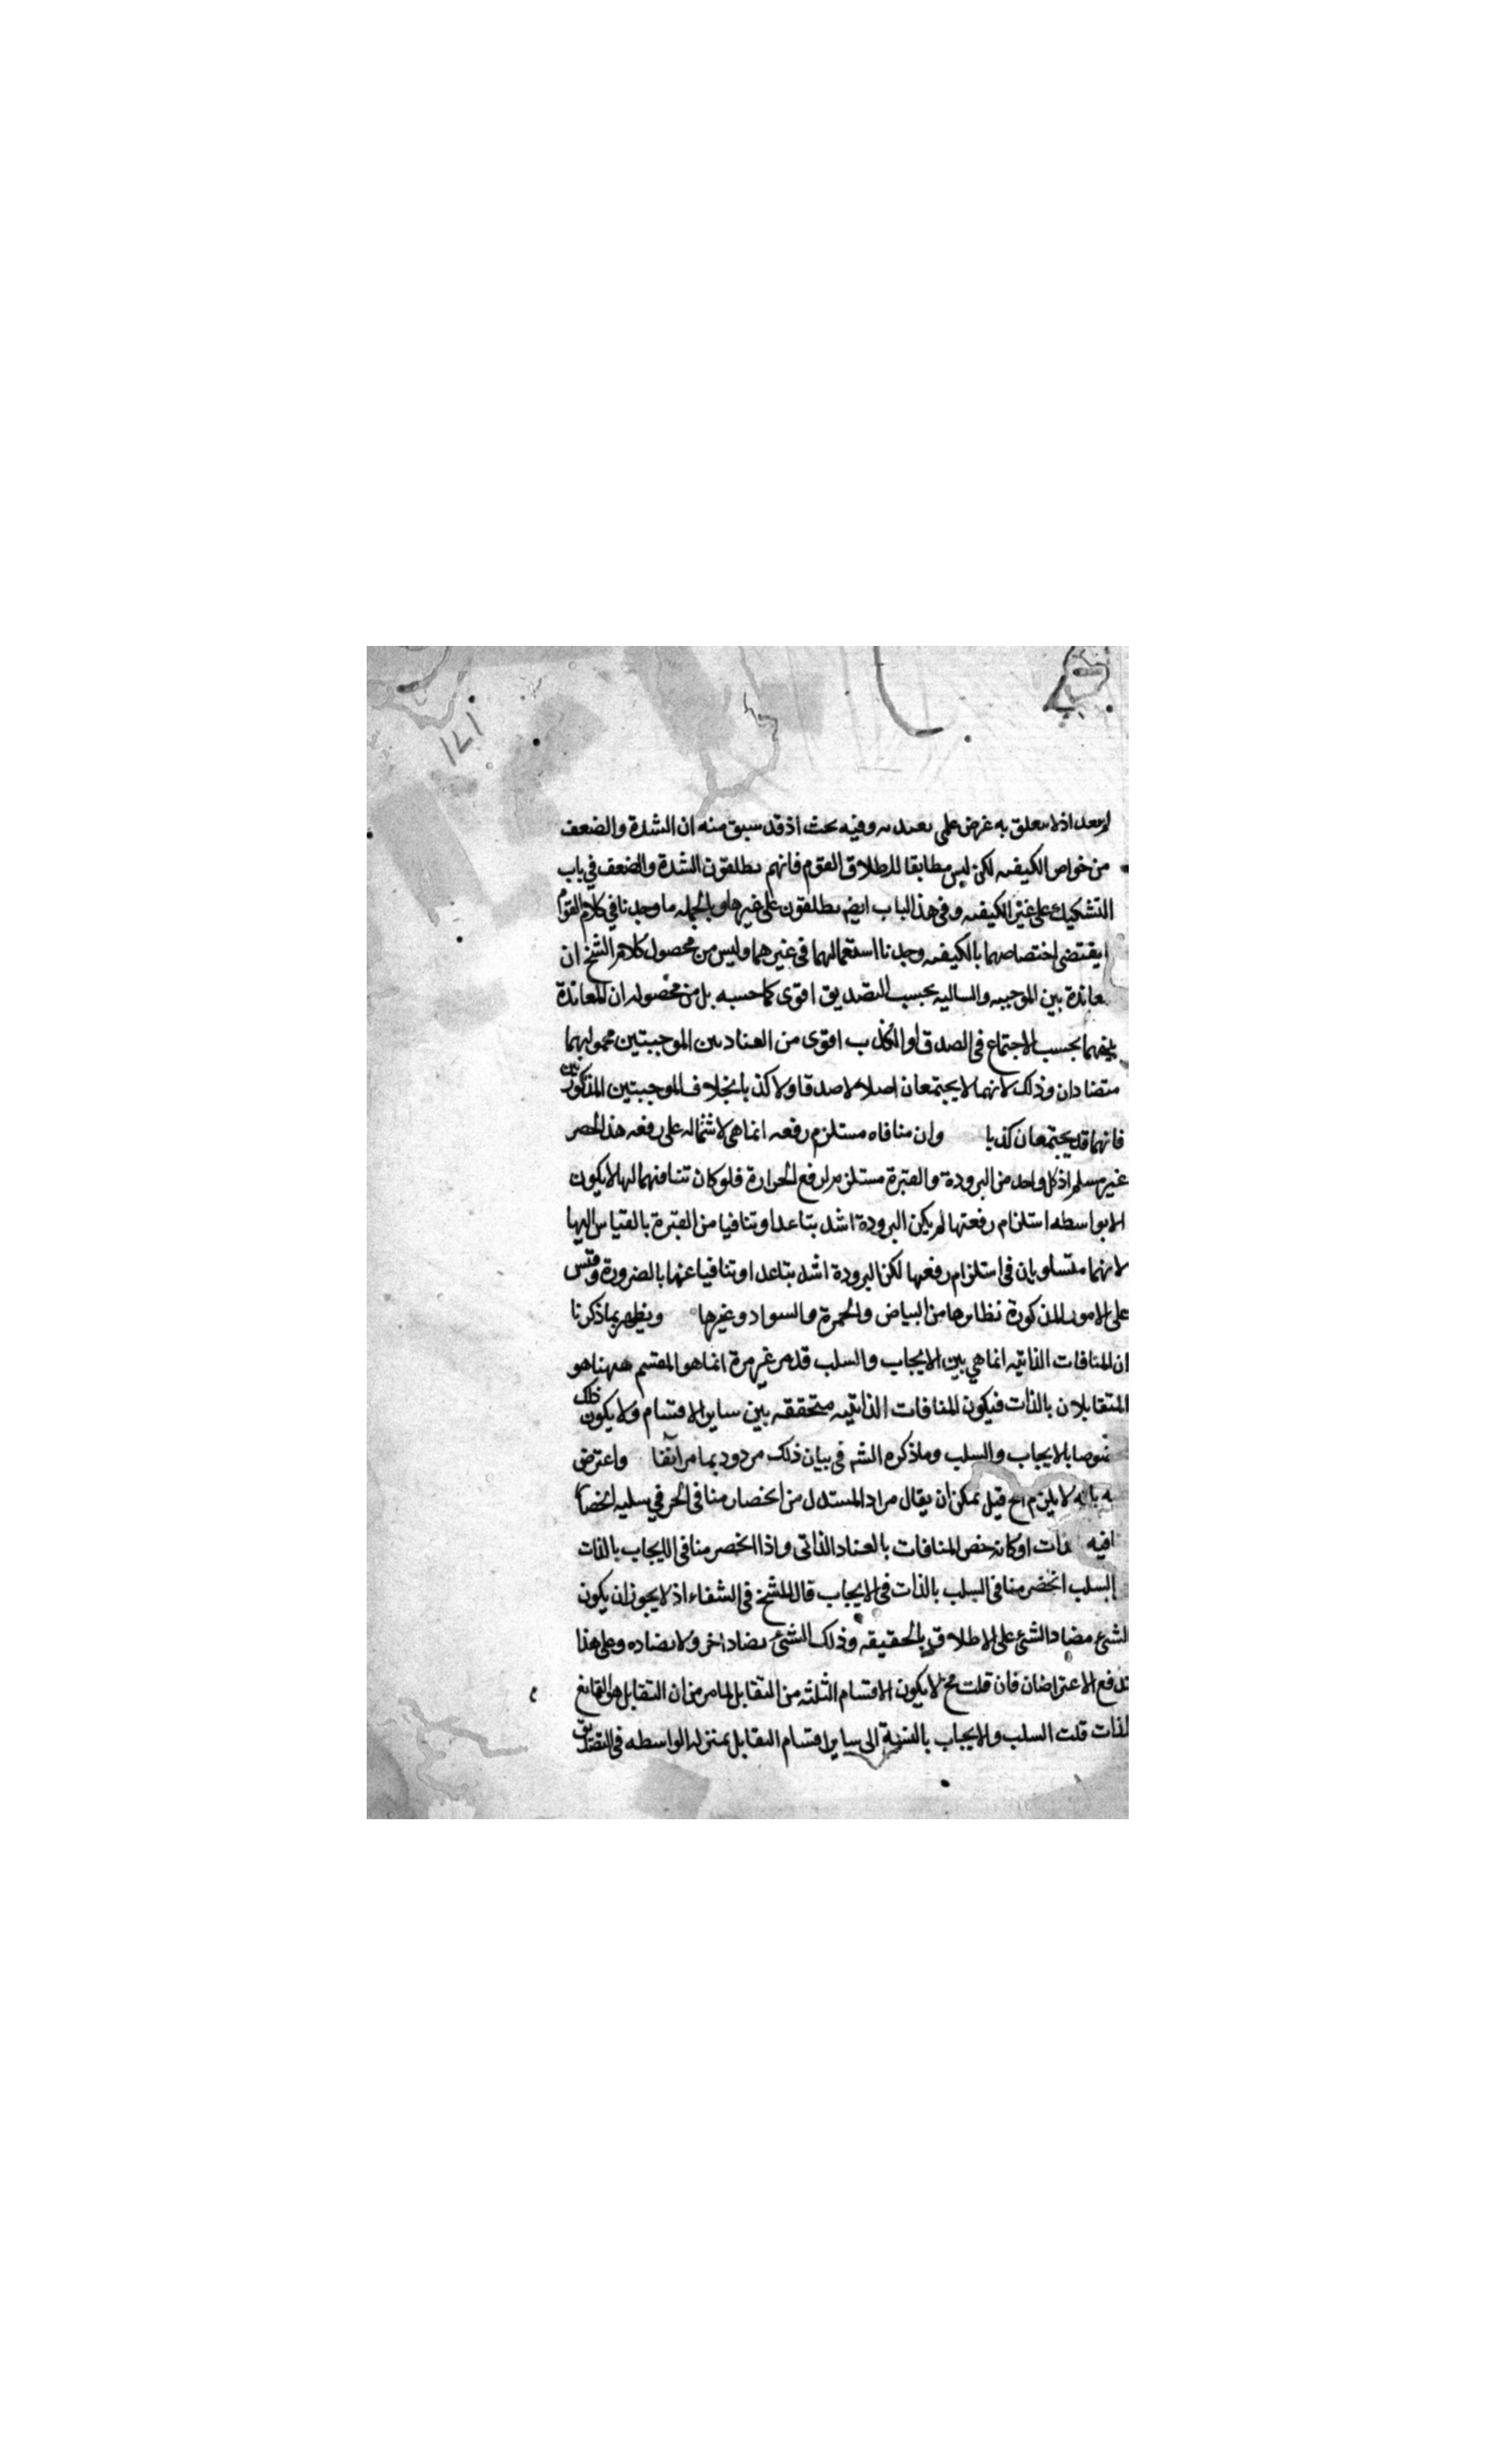 ١٧١
لم يبعد اذ لا يتعلق به غرض علمي يعتد به وفيه بحث اذ قد سبق منه ان الشدة والضعف
من خواص الكيفيه لكن ليس مطابقا لاطلاق القوم فانهم يطلقون الشدة والضعف في باب
التشكيك على غير الكيفيه وفي هذا الباب ايض يطلقون على غيرها وبالجمله ما وجدنا في كلام القوم
ما يقتضي اختصاصهما بالكيفيه وجدنا استعمالهما في غيرهما وليس من محصول كلام الشيخ ان
المعاندة بين الموجبه والسالبه بحسب التصديق اقوى كما حسبه بل من محصوله ان المعاندة
بينهما بحسب الاجتماع في الصدق او الكذب اقوى من العناد بين الموجبتين محمولهما
متضادان وذلك لانهما لا يجتمعان اصلا لا صدقا ولا كذبا بخلاف الموجبتين المذكورتين
فانهما قد يجتمعان كذبا وان منافاه مستلزم رفعه انما هي لاشتماله على رفعه هذا الحصر
غير مسلم اذ كل واحد من البرودة والفترة مستلزم لرفع الحرارة فلو كان تنافيهما لها لا يكون
الا بواسطه استلزام رفعتها لم يكن البرودة اشد تباعدا وتنافيا من الفترة بالقياس اليها
لانهما متساويان في استلزام رفعها لكن البرودة اشد تباعدا وتنافيا عنها بالضرورة وقس
على الامور المذكورة نظائرها من البياض والحمرة والسواد وغيرها ويظهر بما ذكرنا
ان المنافات الذاتيه انما هي بين الايجاب والسلب قد مر غير مرة انما هو المقسم ههنا هو
المتقابلان بالذات فيكون المنافات الذاتيه متحققه بين ساير الاقسام ولا يكون ذلك
مخصوصا بالايجاب والسلب وما ذكره الشه في بيان ذلك مردود بما مر آنفا واعترض
عليه بانه لا يلزم الخ قيل يمكن ان يقال مراد المستدل من انحصار منافي الخر في سلبه انحصار
منافيه بالذات او كانه خص المنافات بالعناد الذاتي واذا انحصر منافي الايجاب بالذات
في السلب انحصر منافي السلب بالذات في الايجاب قال الشيخ في الشفاء اذ لا يجوز ان يكون
الشئ مضاد الشئ على الاطلاق بالحقيقه وذلك الشئ يضاد اخر ولا يضاده وعلى هذا
تدفع الاعتراضان فان قلت مح لا يكون الاقسام الثلثه من التقابل لما مر من ان التقابل هو القانع
بالذات قلت السلب والايجاب بالنسبة الى ساير اقسام التقابل بمنزله الواسطه في التصديق